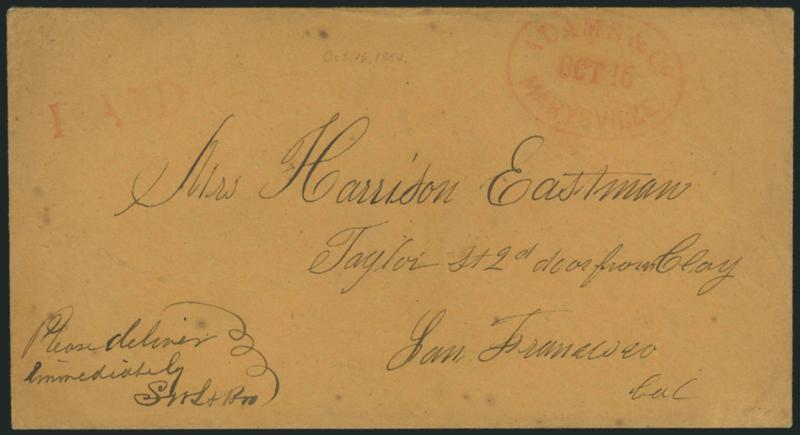 Oct. 16, 1854.
ADAMS & Co
OCT 16
MARYSVILLE
PAID
Mrs Harrison Eastman
Taylor St 2d door from Clay
San Francisco
Cal
Please deliver
immediately